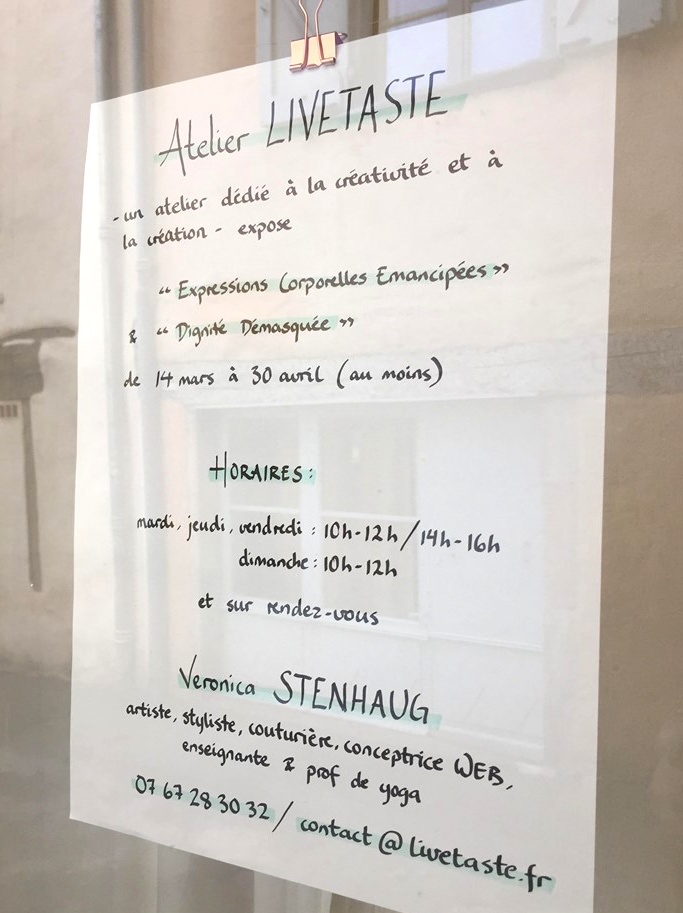 Atelier LIVETASTE
- un atelier dédié à la créativité et à
la création - expose
“ Expressions Corporelles Emancipées ”
& “ Dignité Démasquée ”
de 14 mars à 30 avril (au moins)
HORAIRES:
mardi, jeudi, vendredi : 10h-12h / 14h-16h
dimanche : 10h-12h
et sur rendez-vous
Veronica STENHAUG
artiste, styliste, couturière, conceptrice WEB,
enseignante & prof de yoga
07 67 28 30 32 / contact @ livetaste.fr